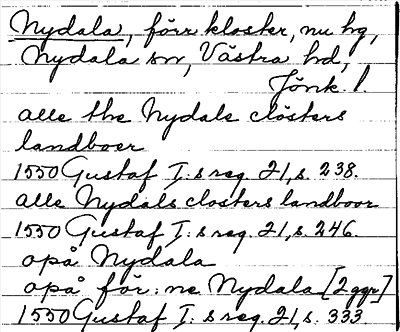 Nydala, förr kloster, nu hg,
Nydala sn, Västra hd,
Jönk. l.
alle the Nydale clösters
landboer
1550 Gustaf I:s reg. 21, s. 238.
alle Nydals closters landboor
1550 Gustaf I:s reg. 21, s. 246.
opå Nydala
opå för:ne Nydala [2 ggr]
1550 Gustaf I:s reg. 21, s. 333.